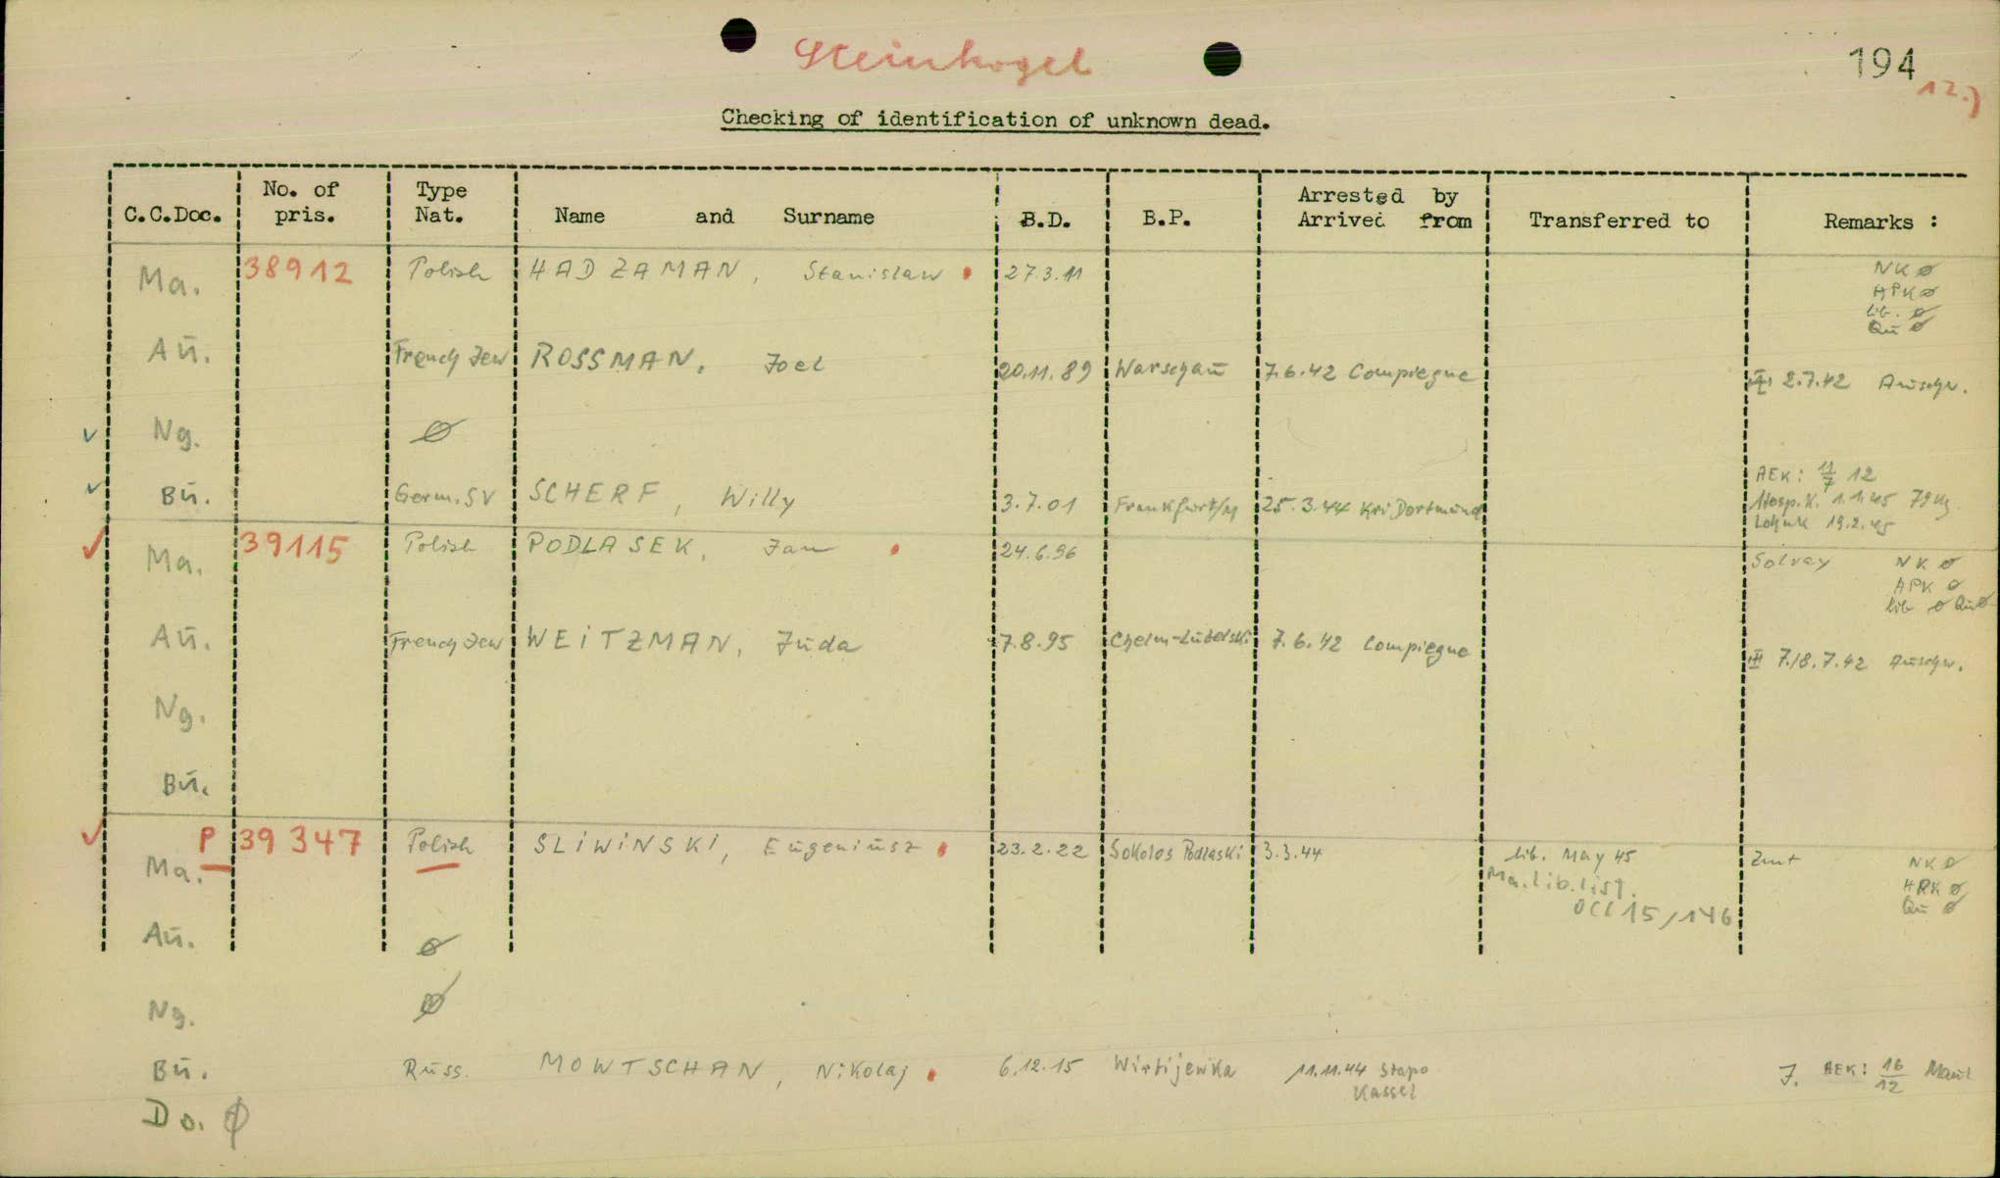 Steinkogel
194
12.)
Checking of identification of unknown dead.
C.C.Doc. No. of pris. Type Nat. Name and Surname B.D. B.P. Arrested by Arrived from Transferred to Remarks :
Ma. 38912 Polish HADZAMAN, Stanislaw 27.3.11 NK ø
APK ø
lib. ø
Qu ø
Aū. French Jew ROSSMAN, Joel 20.11.89 Warschaū 7.6.42 Compiegne 2.7.42 Auschw.
Ng. ø
Bū. Germ. SV SCHERF, Willy 3.7.01 Frankfurt/M 25.3.44 Kri Dortmūnd AEK: 11/7 12
Hosp.K. 1.1.45 79 Kg.
19.2.45
Ma. 39115 Polish PODLASEK, Jan 24.6.96 Solvay NK ø
APK ø
lib ø Qu ø
Aū. French Jew WEITZMAN, Jūda 7.8.95 Chelm-Lūbelski 7.6.42 Compiegne III 7./8.7.42 Auschw.
Ng.
Bū.
P 39347 Polish SLIWINSKI, Eūgeniūsz 23.2.22 Sokolos Podlaski 3.3.44 lib. May 45 NK ø
Ma. Ma. lib. list. APK ø
OCC 15/146 Qu ø
Aū. ø
Ng. ø
Bū. Rūss. MOWTSCHAN, Nikolaj 6.12.15 Wirtijewka 11.11.44 Stapo AEK: 16/12
Kassel
Do. ø